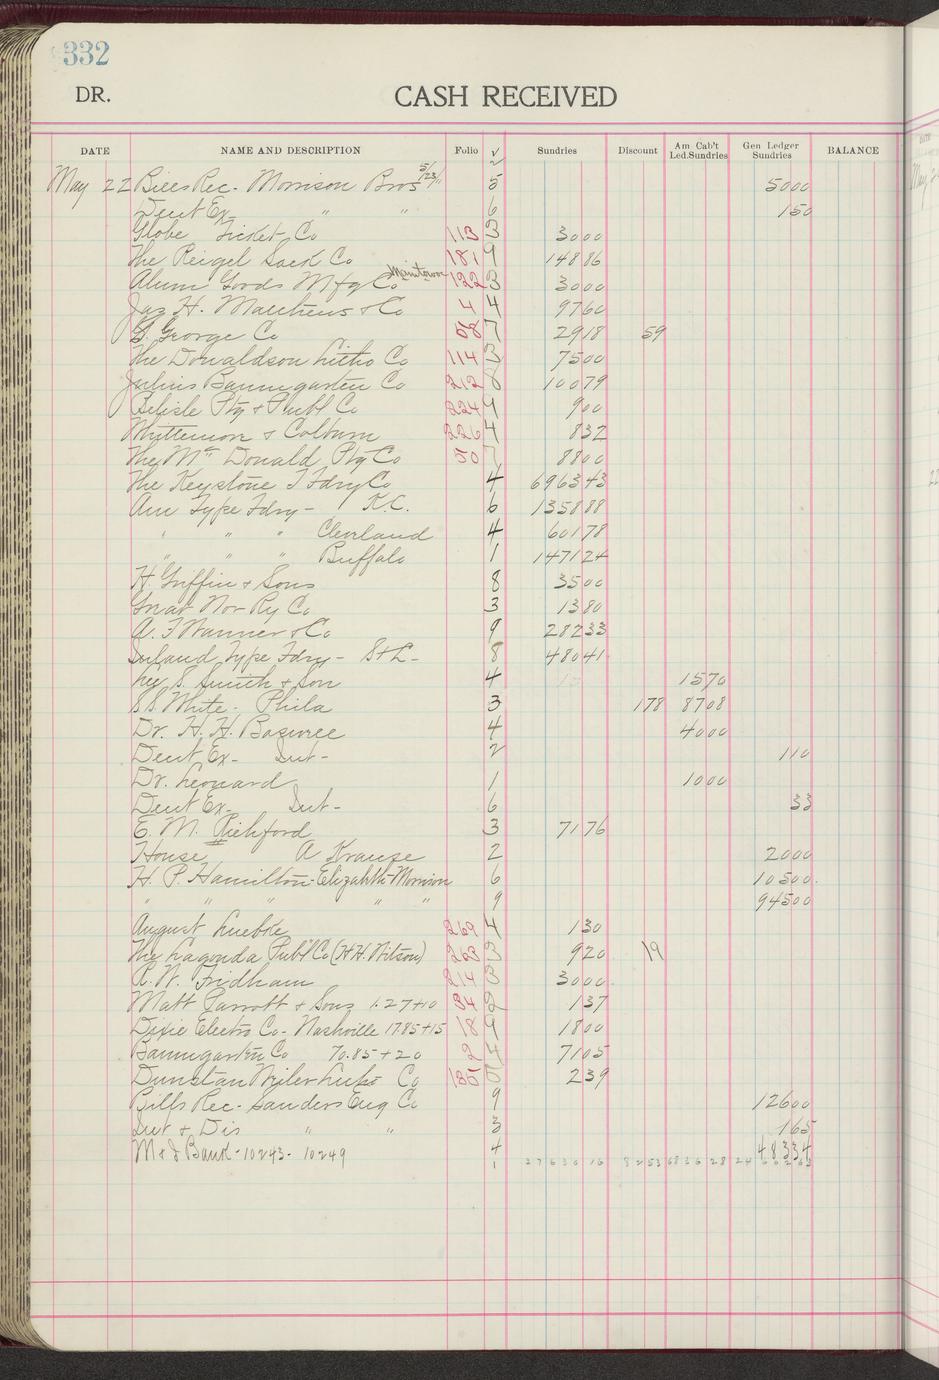 332
DR. CASH RECEIVED
DATE NAME AND DESCRIPTION Folio √ Sundries Discount Am Cab't Led.Sundries Gen Ledger Sundries BALANCE
2
May 22 Bills Rec- Morrison Bros 5/23/11 5 5000
Dent Ex- " " 6 150
Globe Ticket Co 113 3 3000
The Reigel Sack Co 181 9 14886
Alum Goods Mfg Co Manitowoc 122 3 3000
Jas H. Matthews & Co 4 4 9760
S. George Co 58 7 2918 59
The Donaldson Litho Co 114 3 7500
Julius Baumgarten Co 212 8 10079
Belisle Ptg & Publ Co 224 9 900
Whittemore & Colburn 226 4 832
The Mc Donald Ptg Co 50 7 8800
The Keystone T Fdry Co 4 696343
Am Type Fdry - K.C. 6 135888
" " " Cleveland 4 60178
" " " Buffalo 1 147124
H. Griffin & Sons 8 3500
Great Nor Ry Co 3 1380
A. F Wanner & Co 9 28233
Inland Type Fdry - St L- 8 48041
Lee S. Smith & Son 4 1570
S S. White - Phila 3 178 8708
Dr. H. H. 4 4000
Dent Ex- Int- 2 110
Dr. Leonard 1 1000
Dent Ex- Int- 6 33
E. M. Richford 3 7176
House A Krause 2 2000
H. P. Hamilton-Elizabeth-Morrison 6 10500
" " " " " 9 94500
August Luebke 269 4 130
The Lagonda Publ Co (H H. Wilson) 263 3 920 19
R. W. Tridham 214 3 3000
Matt Parrott & Sons 1.27+10 84 2 137
Dixie Electro Co- Nashville 17.85+15 18 9 1800
Baumgarten Co 70.85+20 2 4 7105
Dunstan Co 185 5 239
Bills Rec- Sanders Eng Co 9 12600
Int & Dis " " 3 165
M & I Bank - 10243 - 10249 4 48334
1 2763016 8253 683628